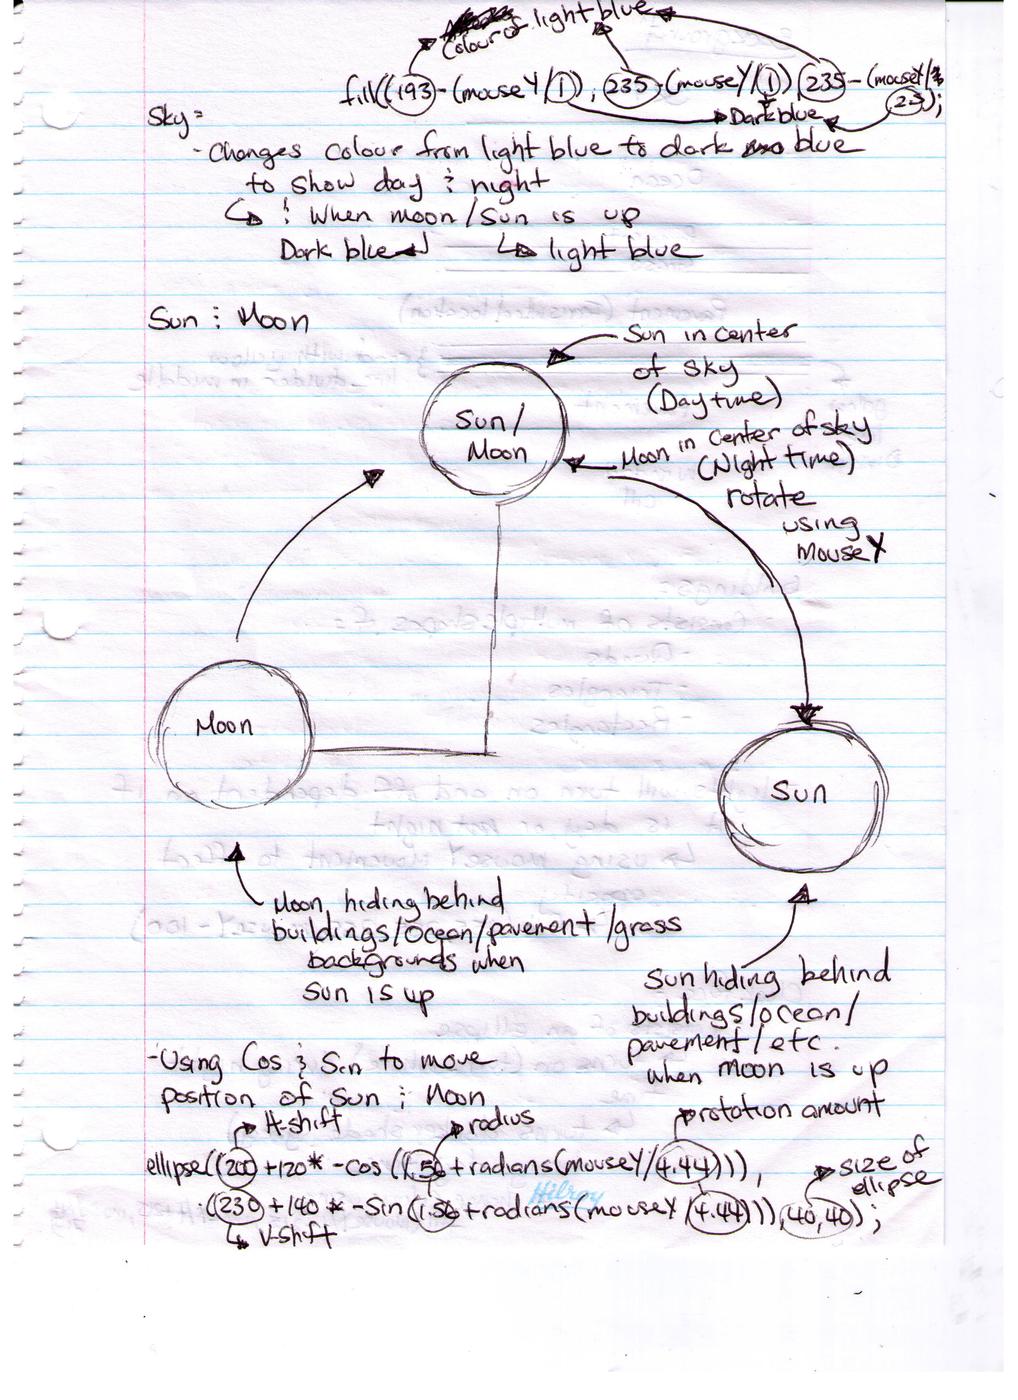 Colour of light blue
fill((193 - (mouseY/1), 235 - (mouseY/1), 235 - (mouseY/
2.3);
Dark blue
Sky =
- Changes colour from light blue to dark blue
to show day & night
& When moon/sun is up
Dark blue light blue
Sun & Moon
Sun in center
of sky
(Day time)
Sun/
Moon
Moon in center of sky
(Night time)
rotate
using
mouseY
Moon
Sun
Moon hiding behind
buildings/ocean/pavement/grass
backgrounds when
Sun is up
Sun hiding behind
buildings/ocean/
pavement/etc.
when moon is up
- Using Cos & Sin to move
position of Sun & Moon
H-shift
radius
rotation amount
ellipse((200 +120* -cos ((1.56 + radians(mouseY/4.44))),
size of
ellipse
((230 +140 * -sin ((1.56 + radians(mouseY/4.44))),40,40);
V-shift
Hilroy